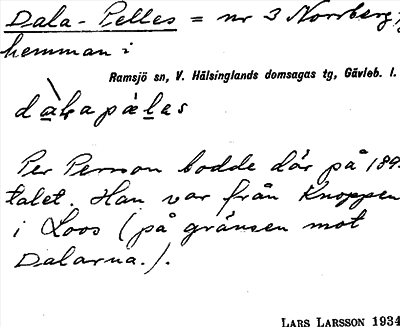 Dala-Pelles = nr 3 Norrberg,
hemman i
Ramsjö sn, V. Hälsinglands domsagas tg, Gävleb. l.
Per Person bodde där på 189
talet. Han var från Knoppen
i Loos (på gränsen mot
Dalarna.).
LARS LARSSON 1934